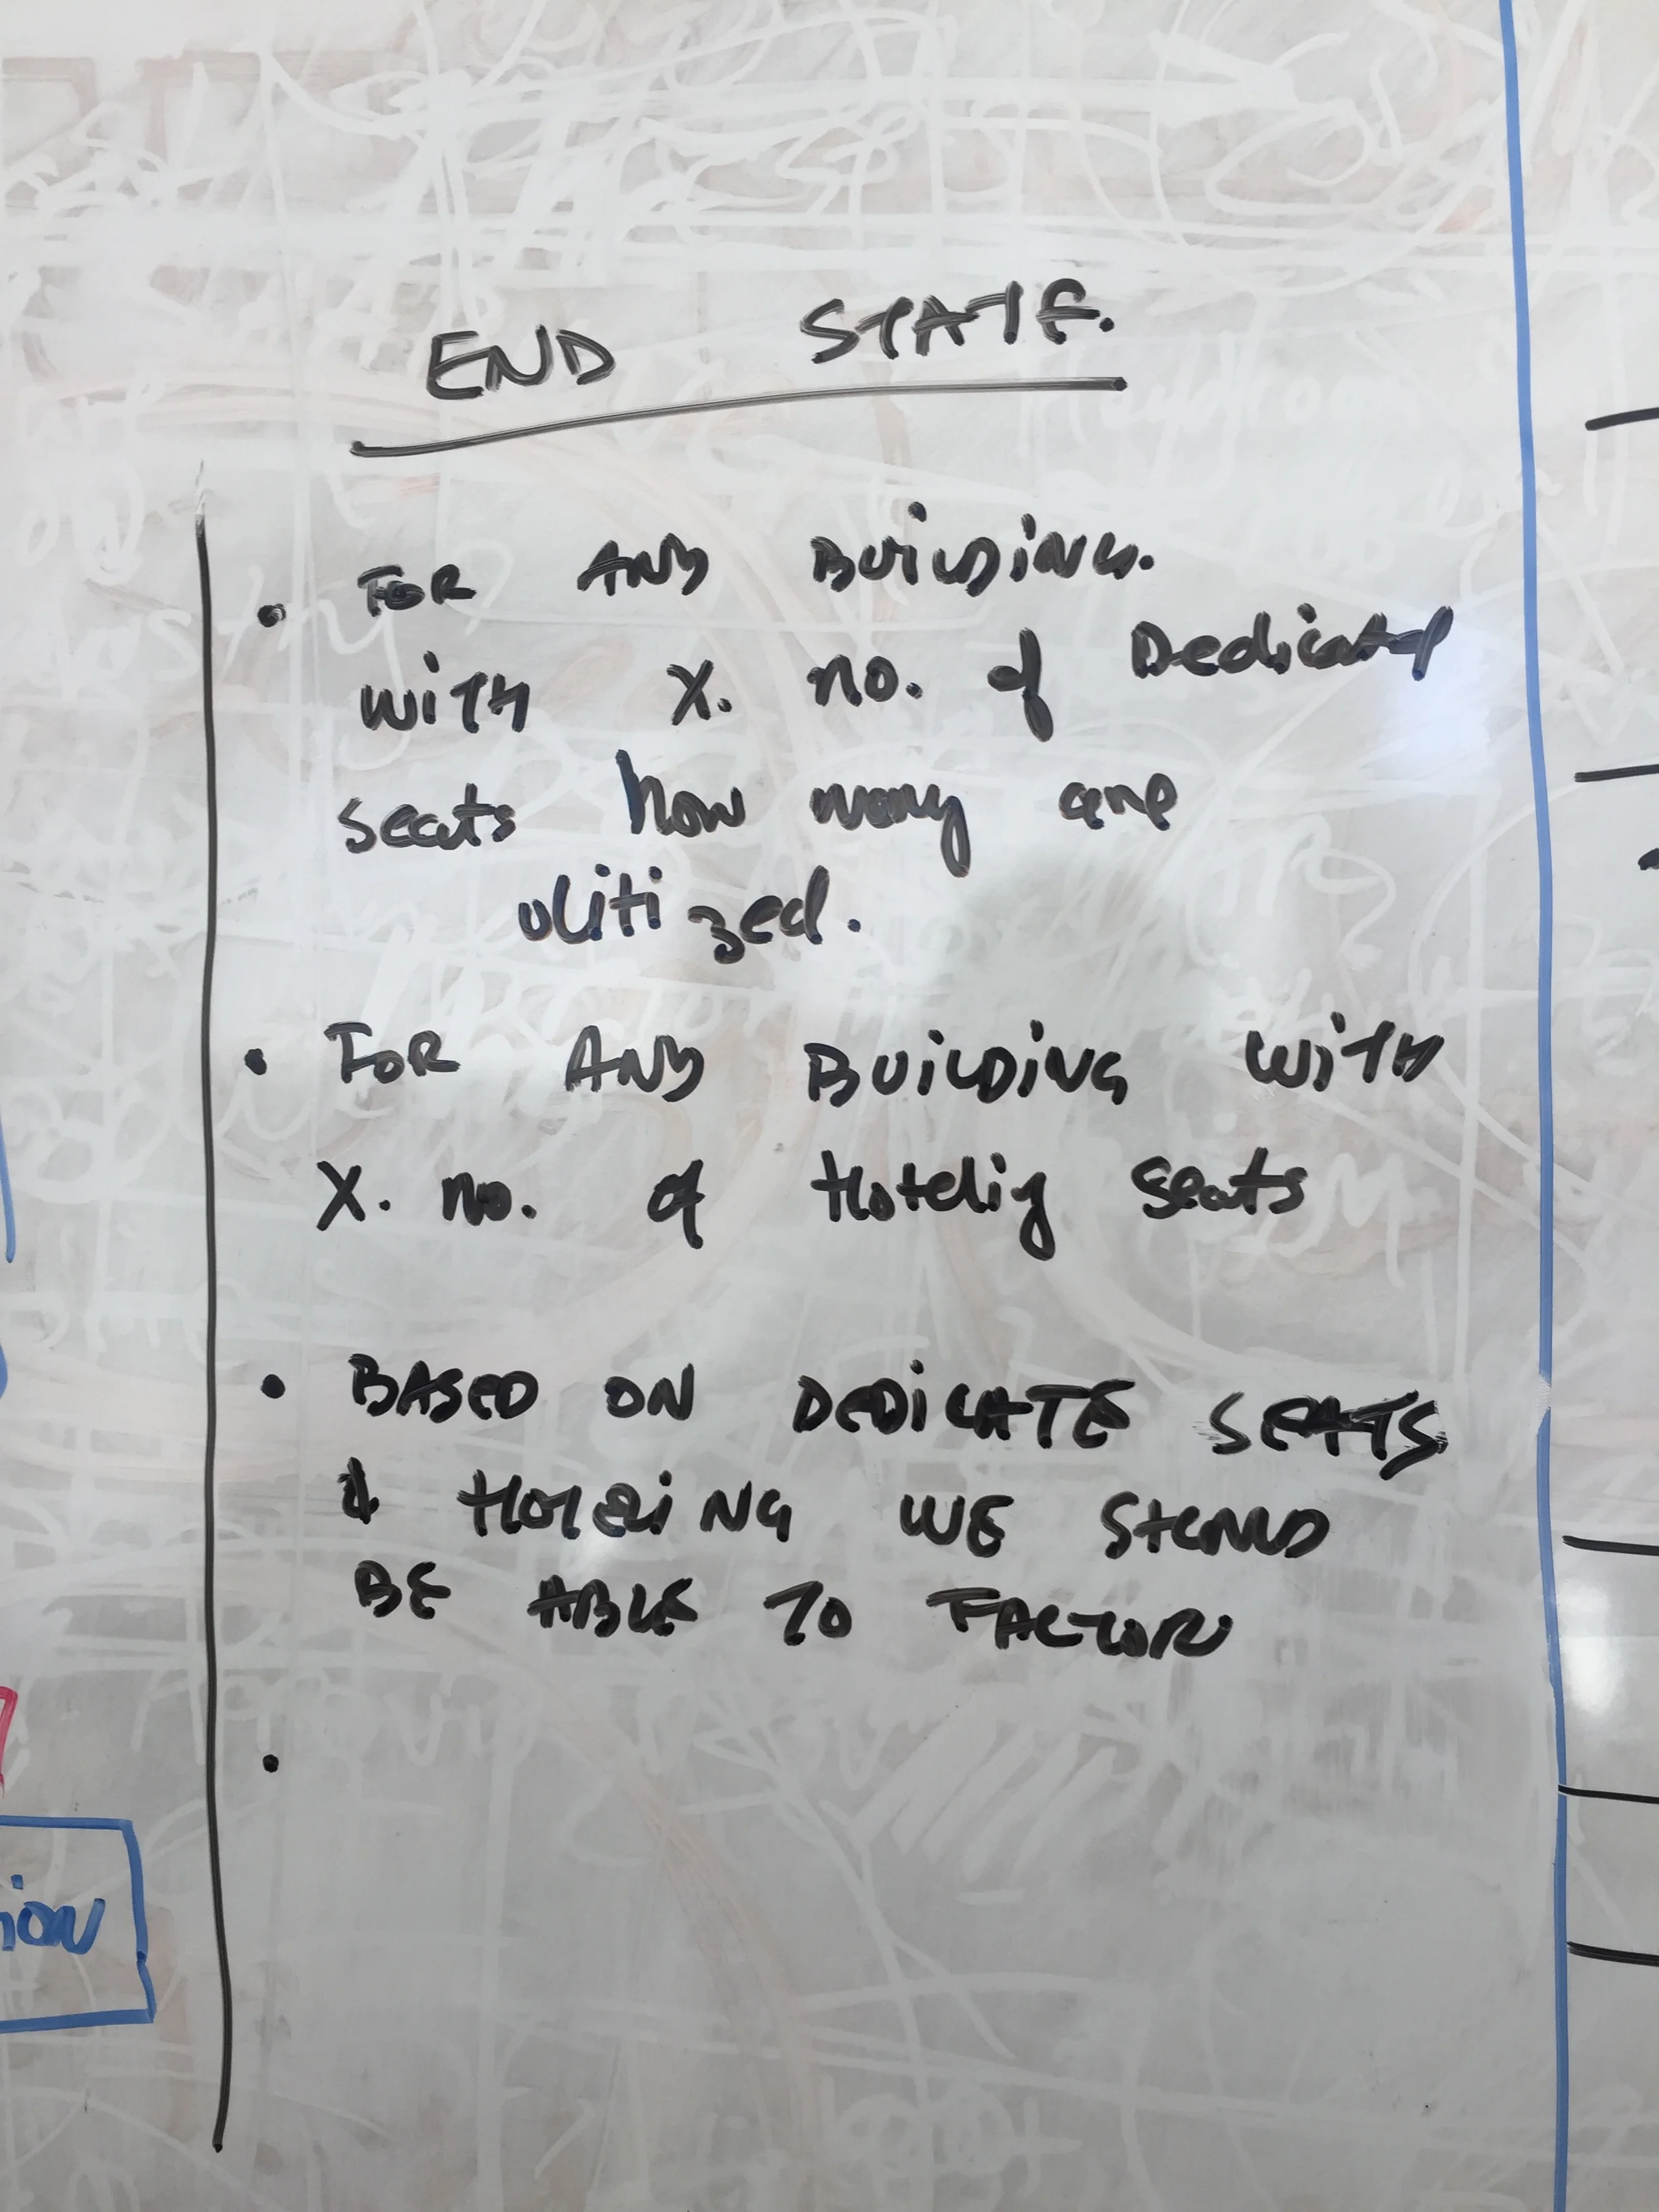 END STATE.
• FOR ANY BUILDING.
WITH X. no. of Dedicated
seats how many are
ulitized.
• FOR ANY BUILDING WITH
X. no. of Hotelig seats
• BASED ON DEDICATE SEATS
& HOTELING WE SHOULD
BE ABLE TO FACTOR
•
ION